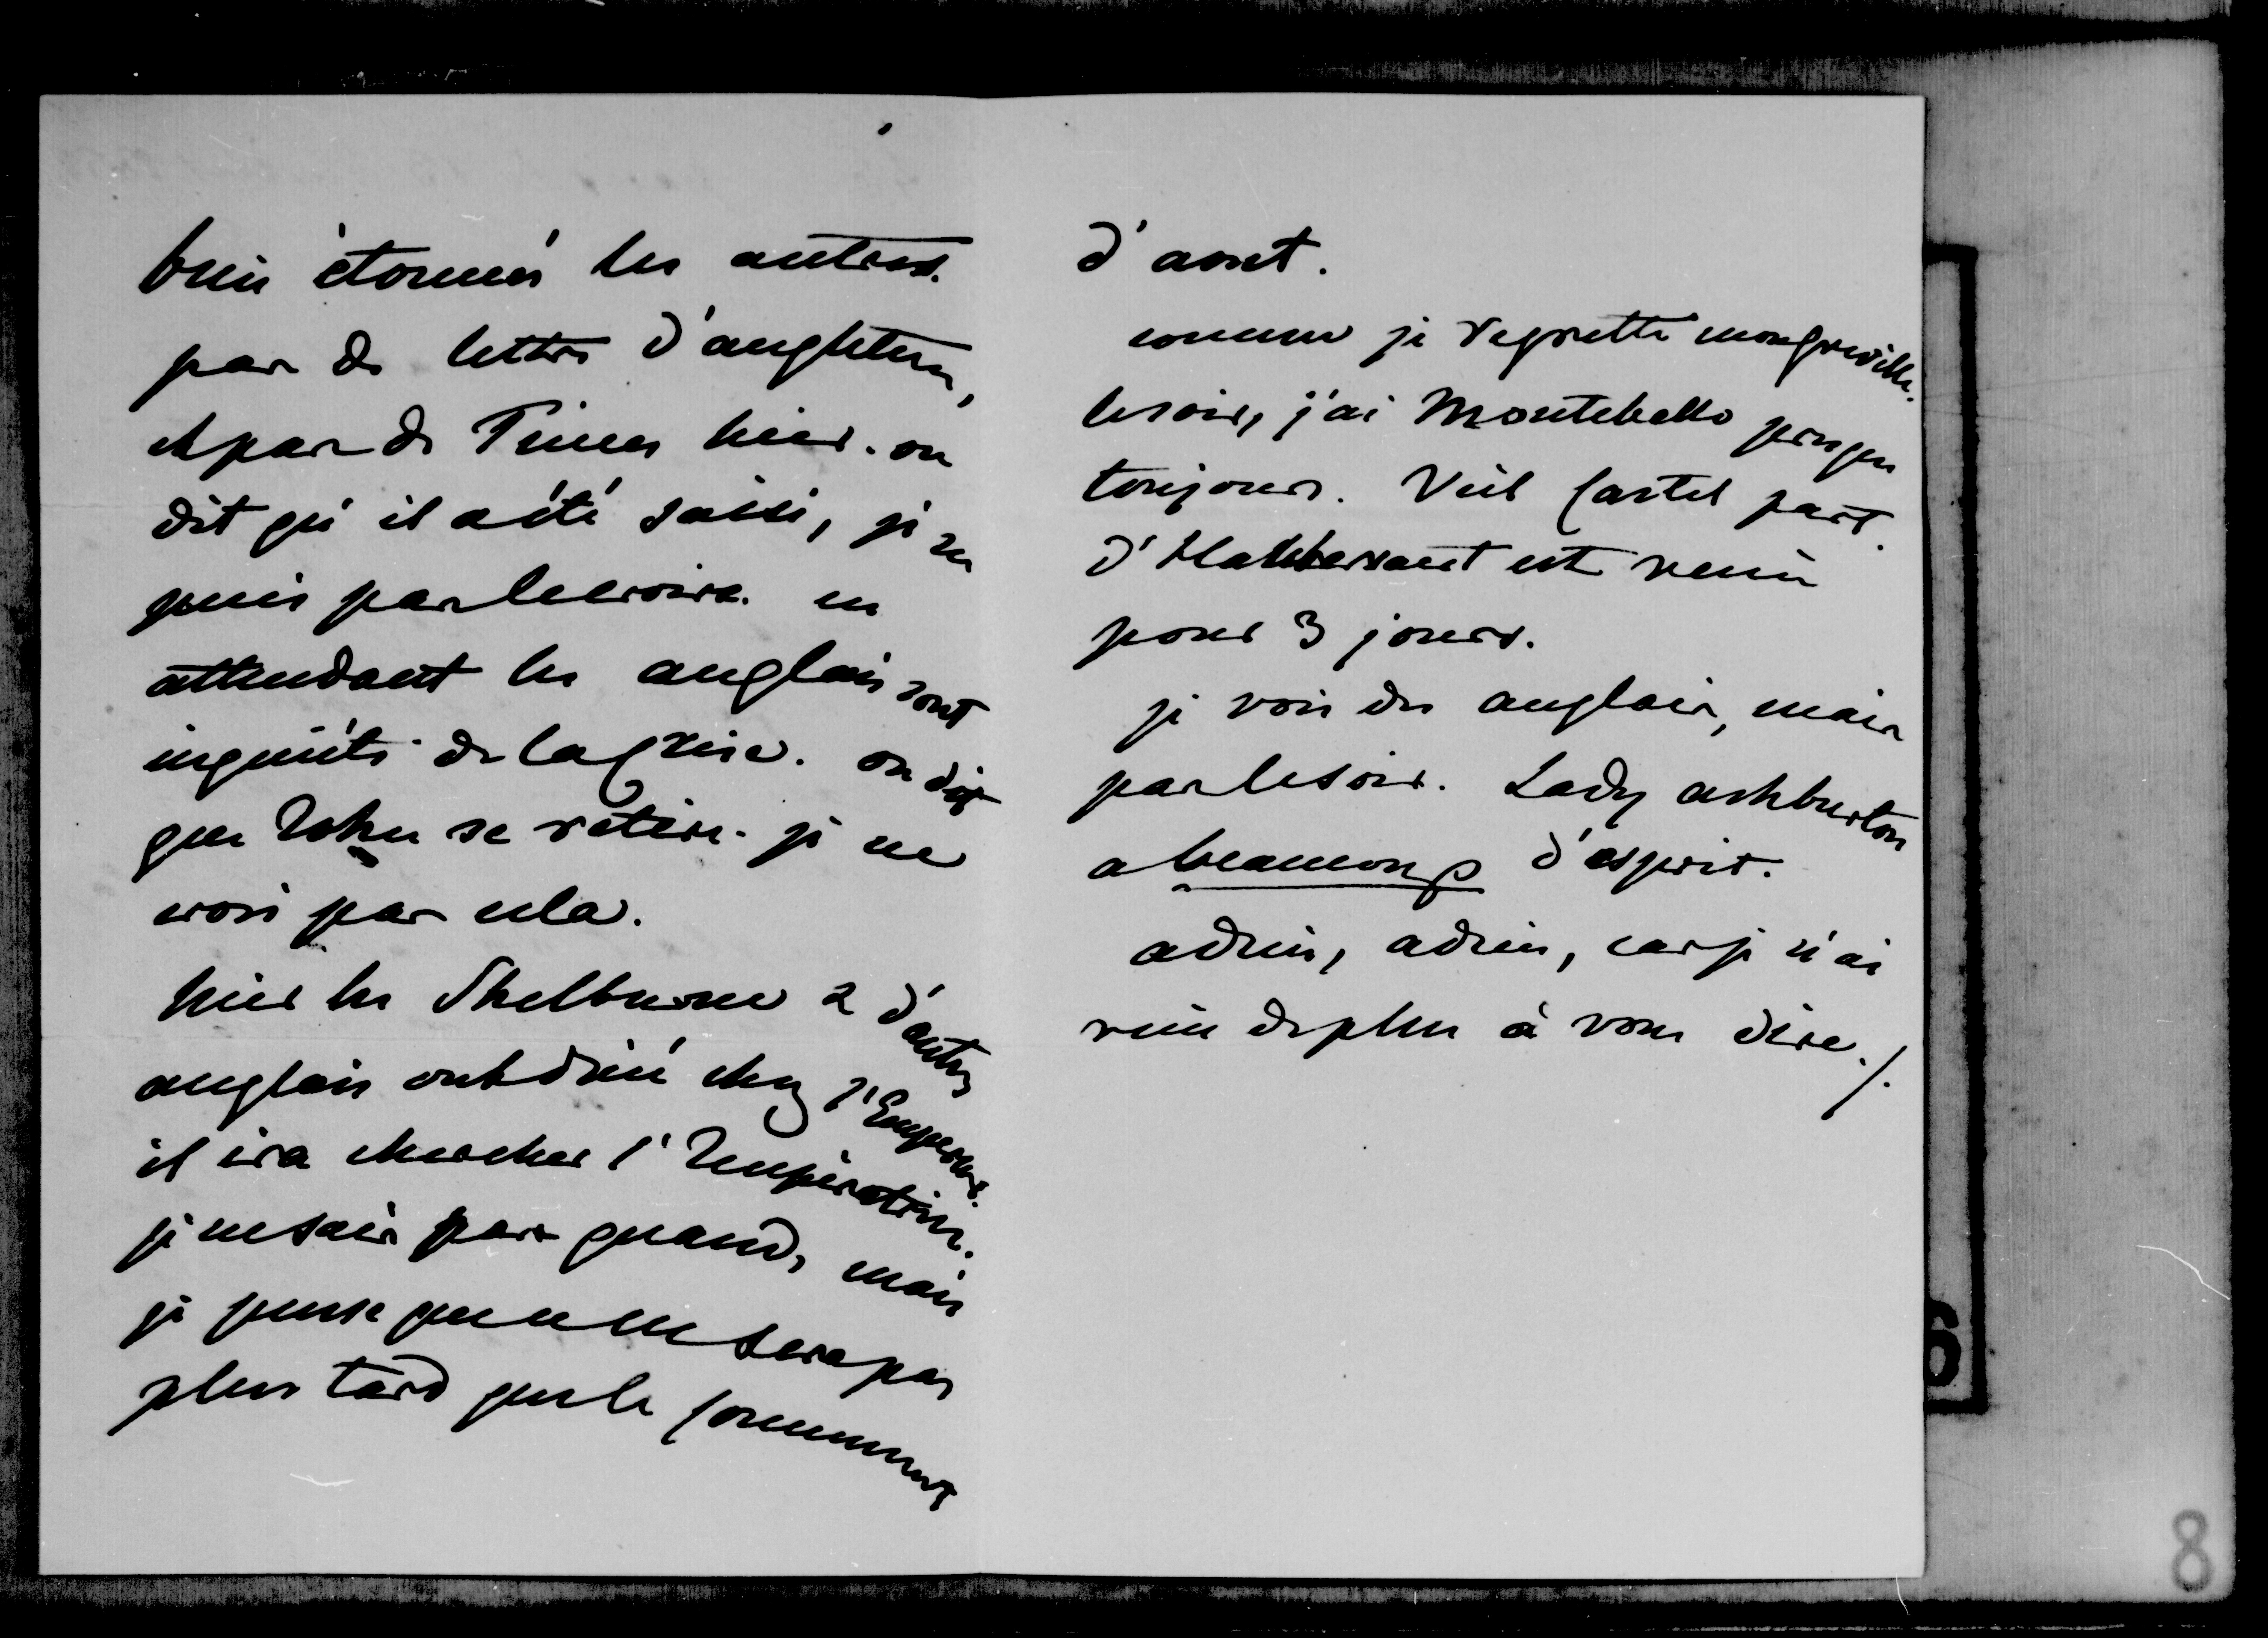 bien étonné les autres.
pas de lettres d'angleterre,
et pas de Times hier. on
dit qu'il a été saisi, je ne
puis pas le croire. en
attendant les anglais sont
inquiets de la crise. on dit
que John se retire. je ne
crois pas cela.
hier les Shelburne & d'autres
anglais ont diné chez l'Empereur.
il ira chercher l'Impératrice.
je ne sais pas quand, mais
je pense que ce ne sera pas
plus tard que le commencement
d'aout.
comme je regrette mon greville.
le soir, j'ai Montebello presque
toujours. Viel Castel part.
d'Haubersaert est venu
pour 3 jours.
je vois des anglais, mais
pas le soir. Lady ashburton
a beaucoup d'esprit.
adieu, adieu, car je n'ai
rien de plus à vous dire./.
6
8